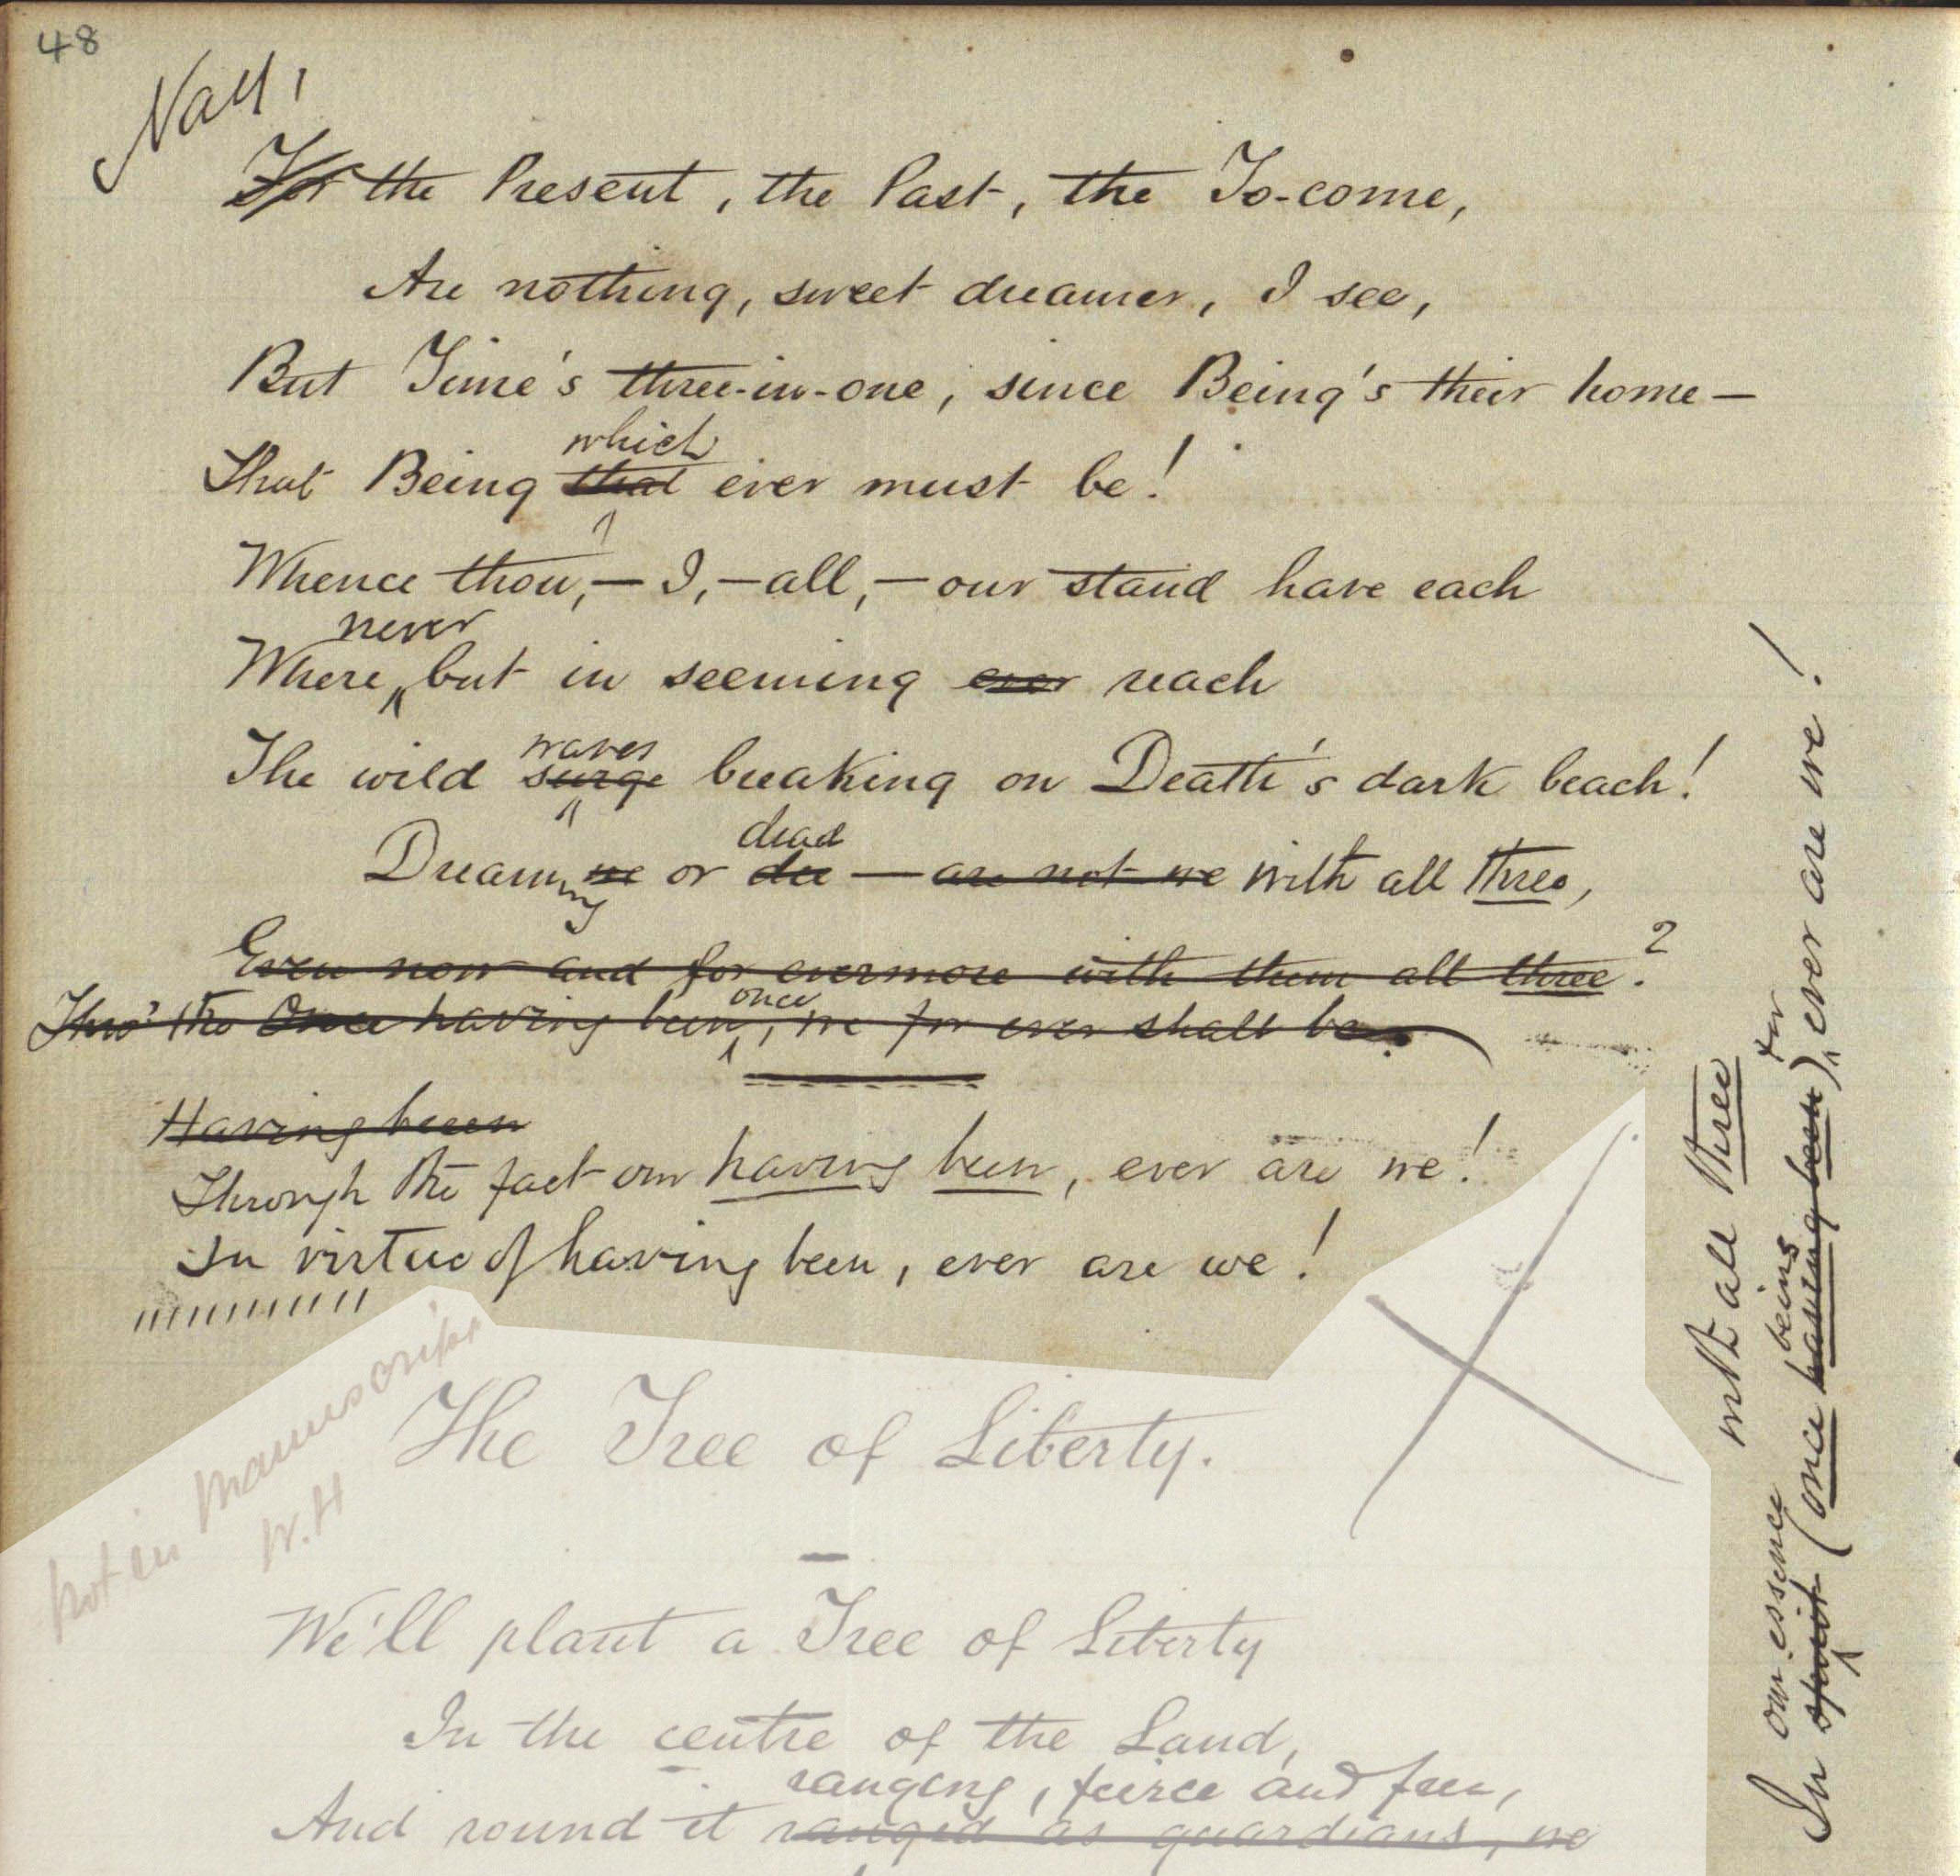 48
Nay,
For the Present, the Past, the To-come,
Are nothing, sweet dreamer, I see,
But Time's three-in-one, since Being's their home—
which
That Being that ever must be!
Whence thou,—I,—all,—our stand have each
never
Where but in seeming ever reach
waves
The wild surge breaking on Death's dark beach!
dead
Dreaming we or die — are not we with all three,
Even now and for evermore with them all three?
once
Thro' the Once having been, we for ever shall be.
Having been
Through the fact our having been, ever are we!
In virtue of having been, ever are we!
not in Manuscript
W.H
The Tree of Liberty.
We'll plant a Tree of Liberty
In the centre of the Land,
ranging, feirce and free,
And round it ranged as guardians, we
with all three
our essence being for
In spirit (once having been) ever are we!